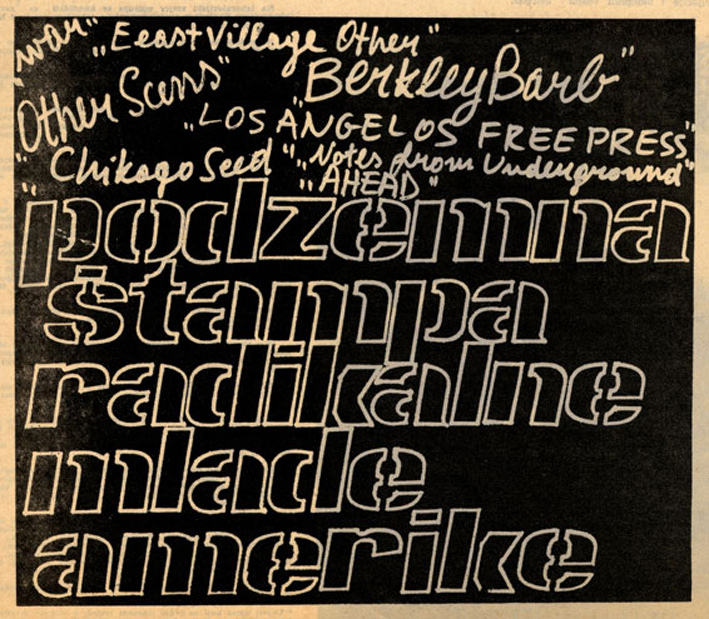 "war" „Eeast Village Other"
Other Scens" „Berkley Barb"
„LOS ANGELOS FREE PRESS"
„Chikago Seed" „Notes from Underground"
„AHEAD"
podzemna
štampa
radikalne
mlade
amerike